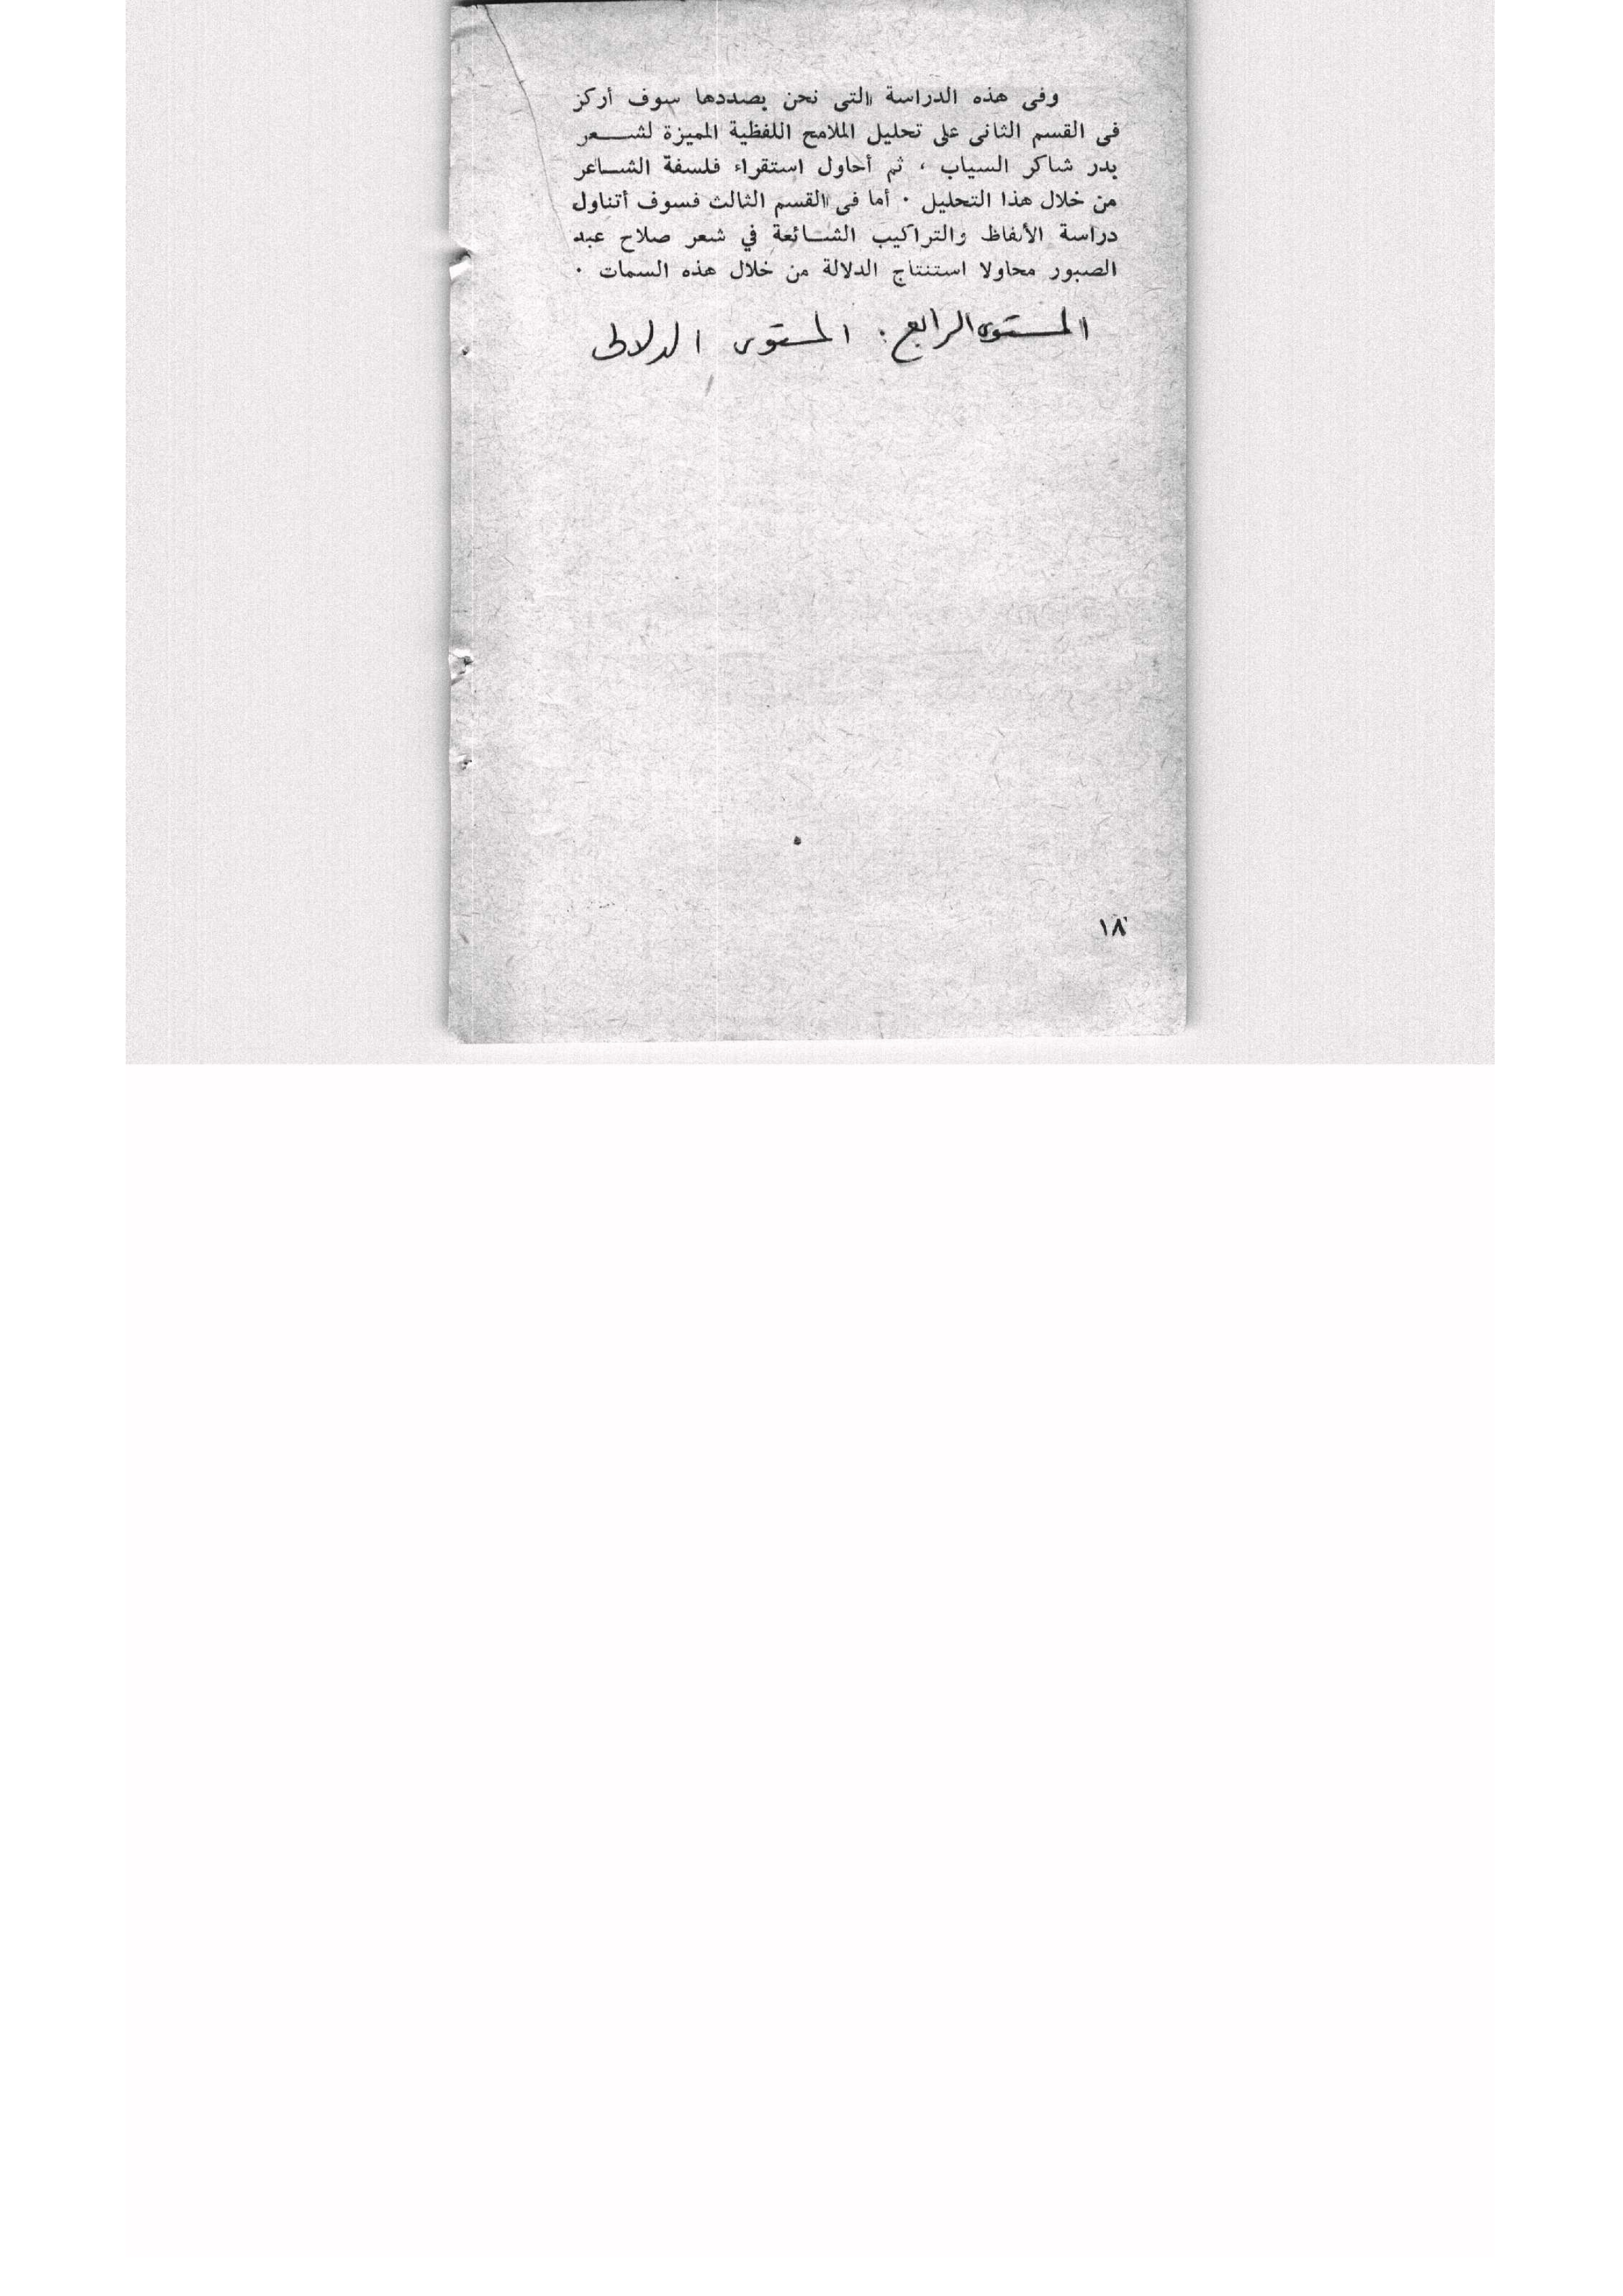 وفى هذه الدراسة التى نحن بصددها سوف أركز
فى القسم الثانى على تحليل الملامح اللفظية المميزة لشعر
بدر شاكر السياب ، ثم أحاول استقراء فلسفة الشاعر
من خلال هذا التحليل . أما فى القسم الثالث فسوف أتناول
دراسة الألفاظ والتراكيب الشائعة في شعر صلاح عبد
الصبور محاولا استنتاج الدلالة من خلال هذه السمات .
المستوى الرابع : المستوى الدلالى
١٨